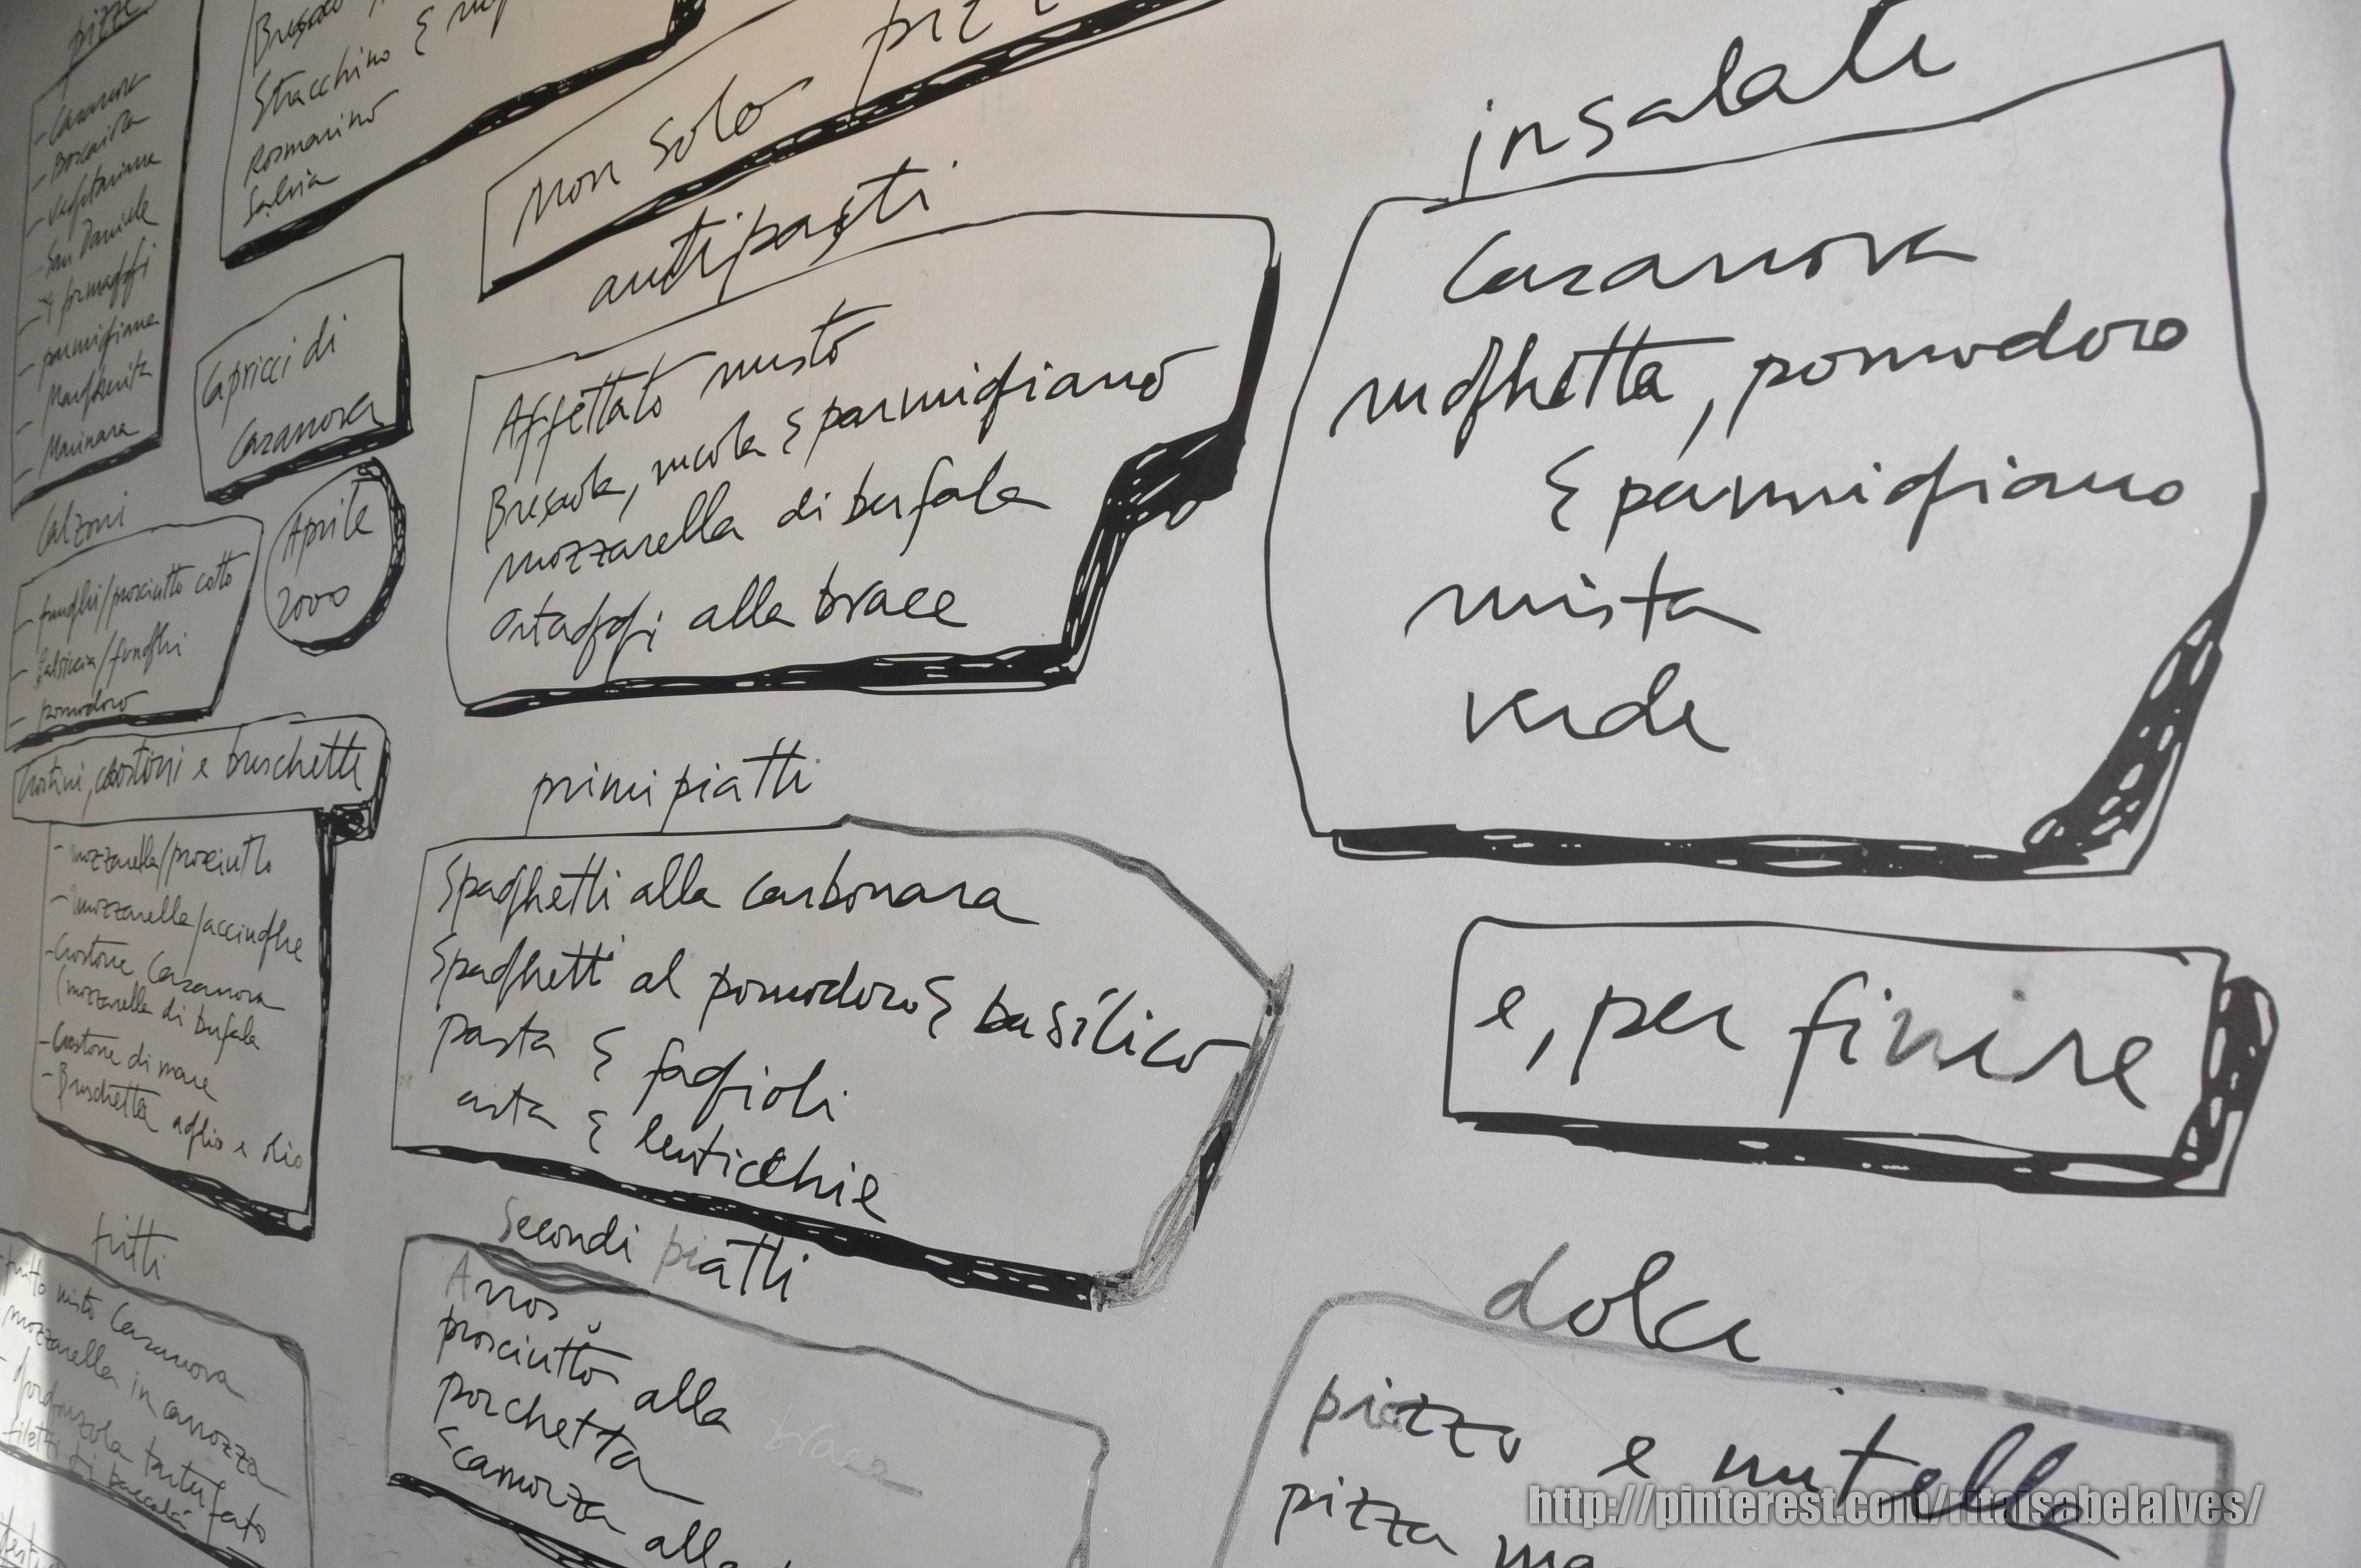 pizze
- Casanova
- Boscaiola
- vegetariana
- San Daniele
- 4 formaggi
- parmigiana
- Margherita
- Marinara
Stracchino &
Rosmarino
Salvia
Capricci di
Casanova
Calzoni
- funghi/prosciutto cotto
- salsiccia/funghi
- pomodoro
Aprile
2000
Crostini, crostoni e bruschette
- mozzarella/prosciutto
- mozzarella/acciughe
- Crostone Casanova
(mozzarella di bufala
- Crostone di mare
- Bruschetta aglio e olio
fritti
fritto misto Casanova
mozzarella in carrozza
- gorgonzola tartufato
filetti di baccalà
Non solo
antipasti
Affettato misto
Bresaola, rucola & parmigiano
mozzarella di bufala
ortaggi alla brace
primi piatti
Spaghetti alla carbonara
Spaghetti al pomodoro & basilico
pasta & fagioli
asta & lenticchie
Secondi piatti
Arros
prosciutto alla brace
porchetta
scamorza alla
insalate
Casanova
rughetta, pomodoro
& parmigiano
mista
verde
e, per finire
dolci
pizza e nutella
pizza ma
http://pinterest.com/ritaisabelalves/